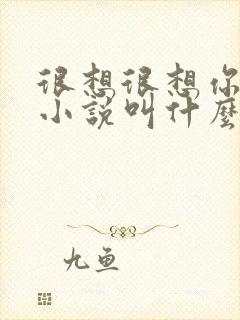 很想很想你
小说叫什麼
九鱼